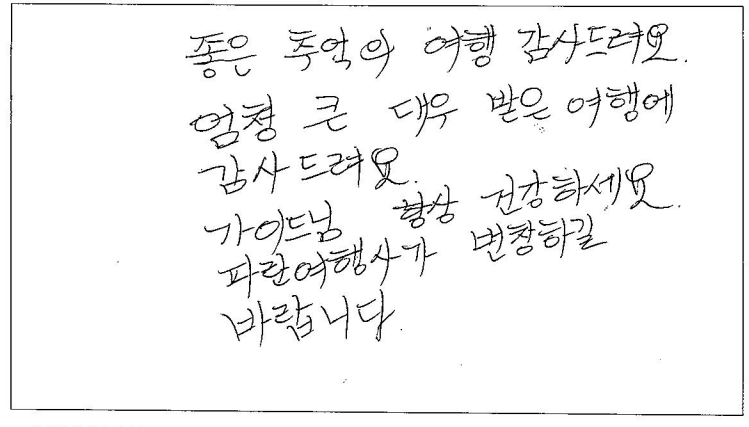 좋은 추억의 여행 감사드려요.
엄청 큰 대우 받은 여행에
감사드려요.
가이드님 항상 건강하세요.
파란여행사가 번창하길
바랍니다